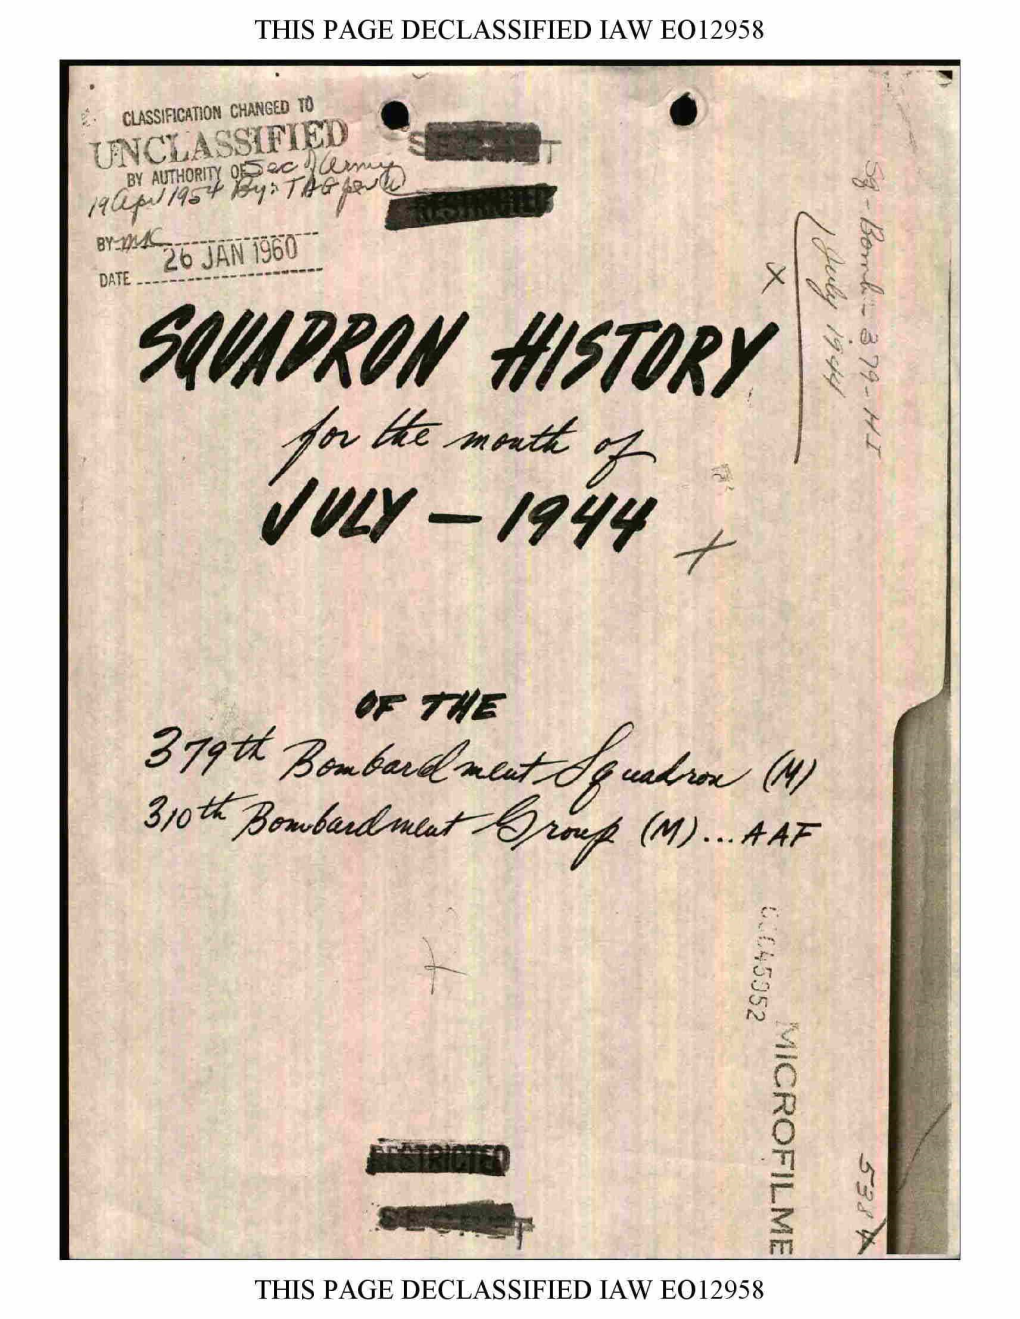 THIS PAGE DECLASSIFIED IAW EO12958
CLASSIFICATION CHANGED TO
UNCLASSIFIED
BY AUTHORITY OF Sec of Army
19 Apr 1954 By: TAG per
BY
DATE 26 JAN 1960
SECRET
RESTRICTED
Sq-Bomb-379-HI
July 1944
X
SQUADRON HISTORY
for the month of
JULY — 1944
OF THE
379th Bombardment Squadron (M)
310th Bombardment Group (M)...AAF
MICROFILME
RESTRICTED
SECRET
THIS PAGE DECLASSIFIED IAW EO12958